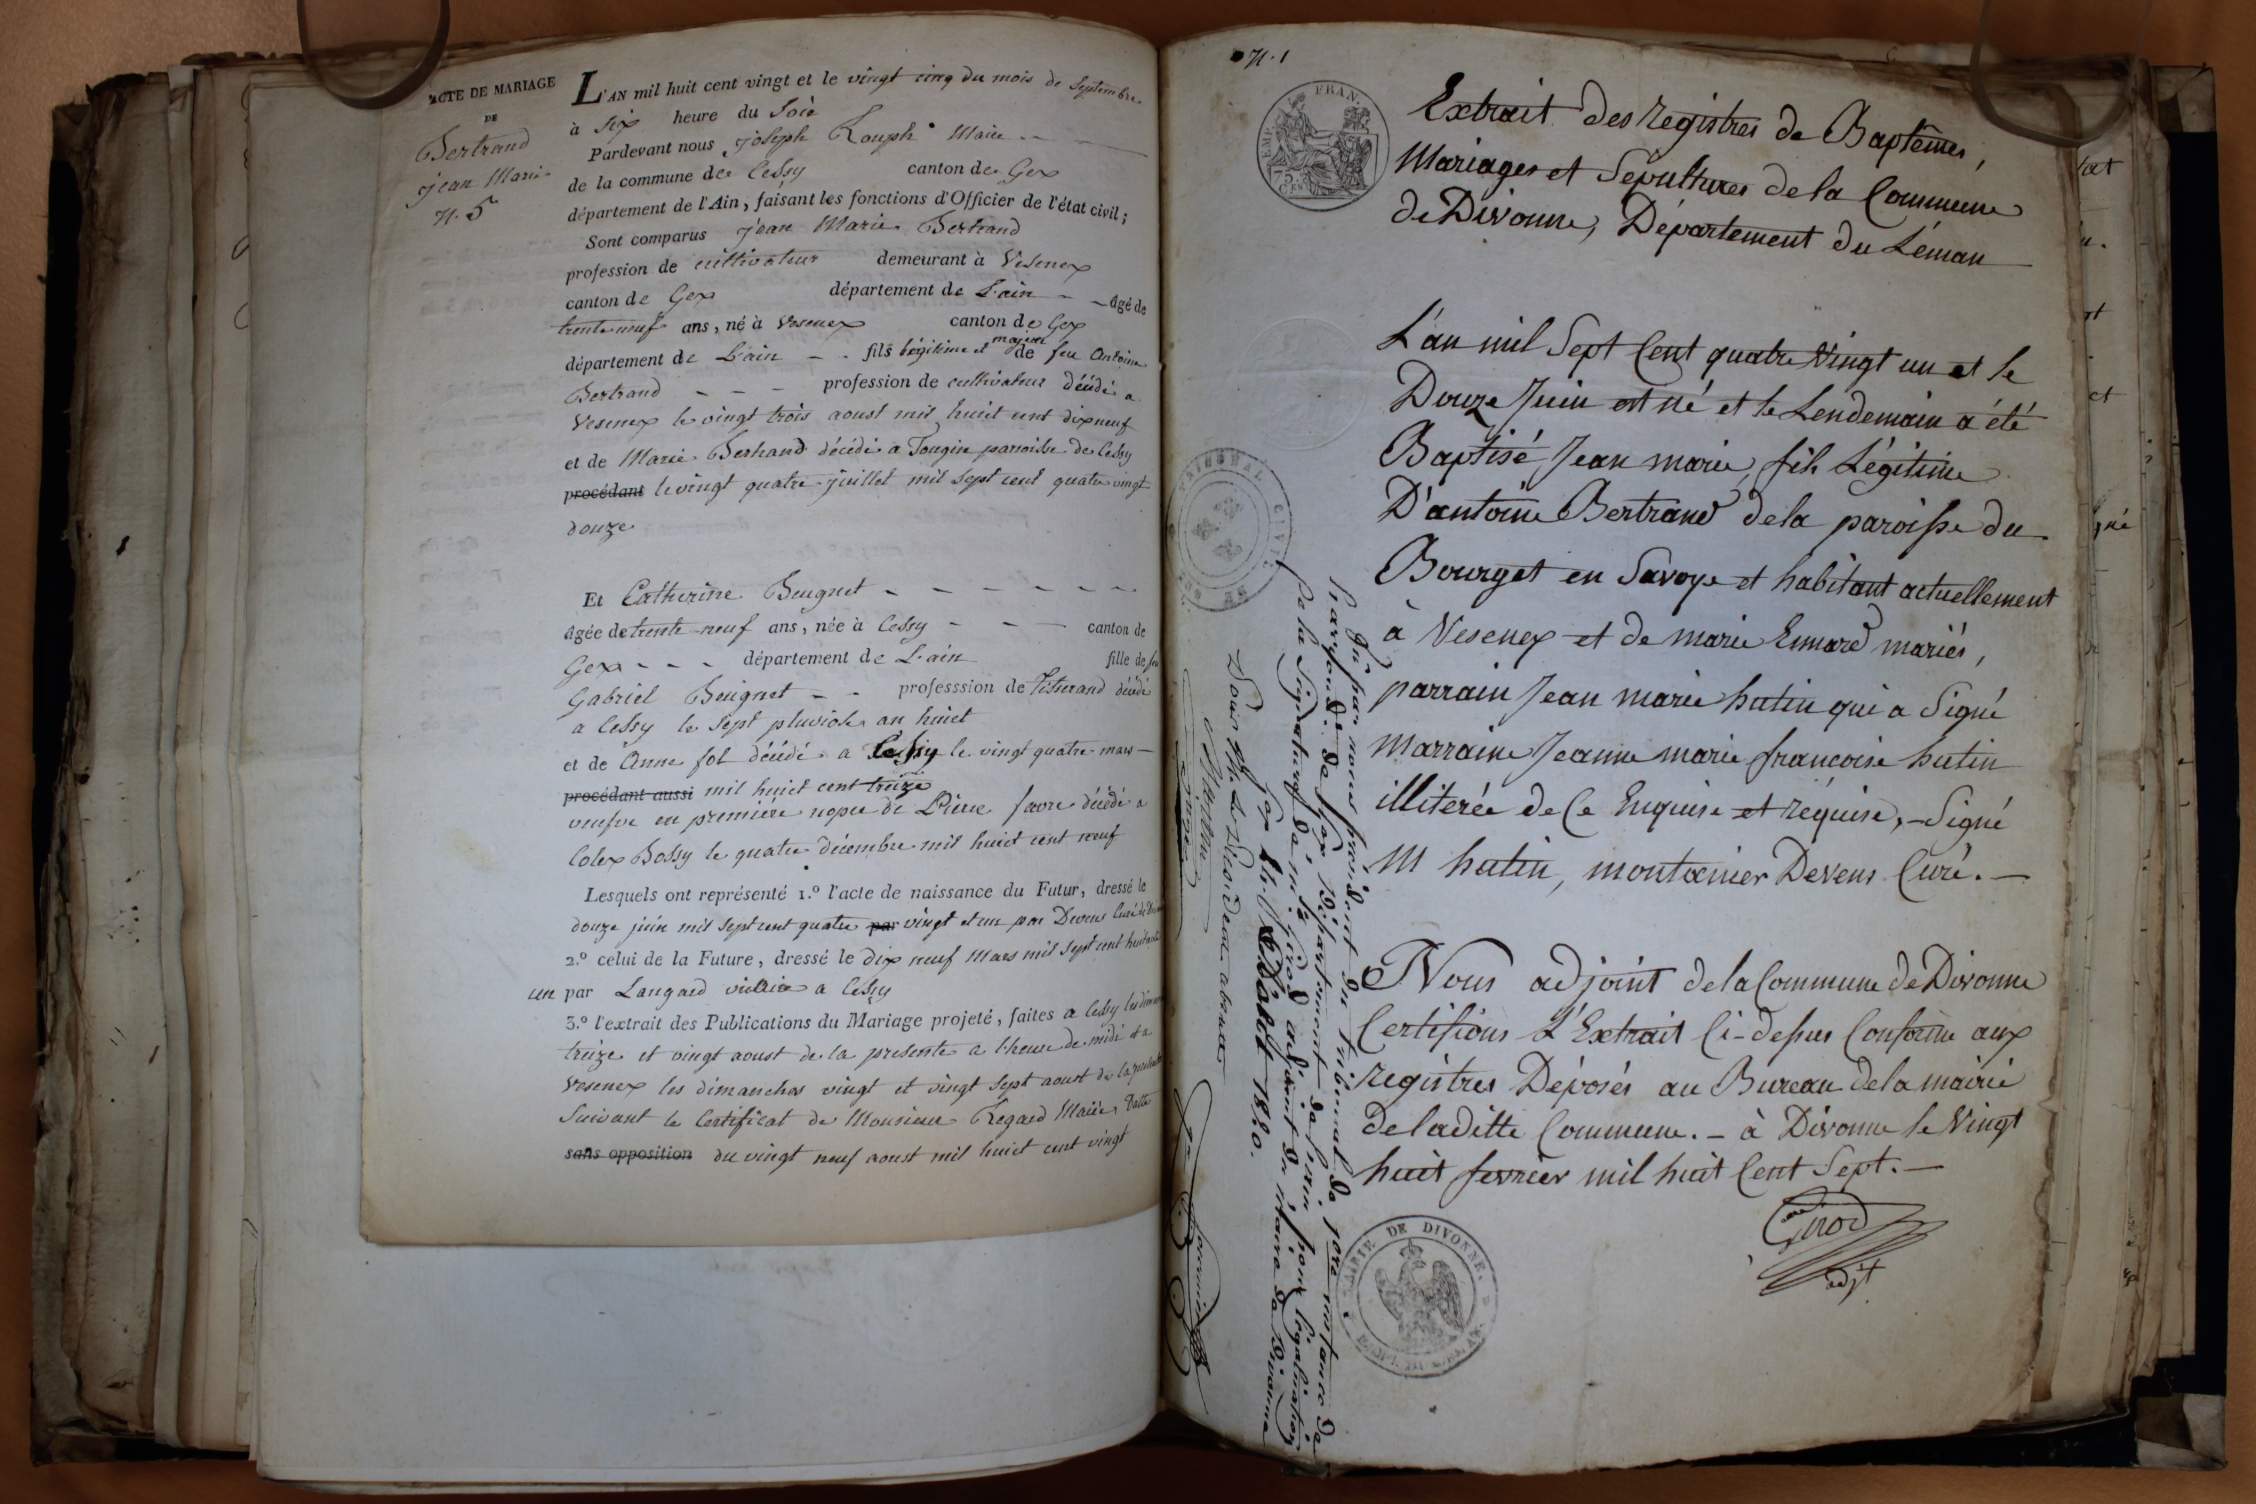 ACTE DE MARIAGE
DE
Bertrand
jean Marie
N. 5
L'AN mil huit cent vingt et le vingt cinq du mois de Septembre
à Six heure du Soir
Pardevant nous joseph Rouph Maire
de la commune de Cessy canton de Gex
département de l'Ain, faisant les fonctions d'Officier de l'état civil;
Sont comparus jean Marie Bertrand
profession de cultivateur demeurant à Vesenex
canton de Gex département de L'ain âgé de
trente neuf ans, né à Vesenex canton de Gex
département de L'ain - - fils légitime et majeur de feu Antoine
Bertrand - - - profession de cultivateur décédé a
Vesenex le vingt trois aoust mil huict cent dixneuf
et de Marie décédé a Tougin parroisse de Cessy
procédant le vingt quatre juillet mil sept cent quatre vingt
douze
Et Catherine Beugnet - - - - - - -
âgée de trente neuf ans, née à Cessy - - - canton de
Gex - - - département de L'ain fille de feu
Gabriel Beugnet - - professsion de Tisserand décédé
a Cessy le sept pluviose an huict
et de Anne fol décédé a Cessy le vingt quatre mars
procédant aussi mil huict cent treize
veufve en première nopce de Pierre favre décédé a
Colex Bossy le quatre décembre mil huict cent neuf
Lesquels ont représenté 1.º l'acte de naissance du Futur, dressé le
douze juin mil sept cent quatre par vingt et un par Devens Curé de
2.º celui de la Future, dressé le dix neuf Mars mil sept cent huitante
un par Langard vicaire a Cessy
3.º l'extrait des Publications du Mariage projeté, faites a Cessy les dimanches
treize et vingt aoust de la presente a l'heure de midi et a
Vesenex les dimanches vingt et vingt sept aoust de la presente
Suivant le Certificat de Monsieur Regard Maire, datté
sans opposition du vingt neuf aoust mil huict cent vingt
N. 1
EMP. FRAN.
75 CEN.
Extrait des Registres de Baptêmes,
Mariages et Sépultures de la Commune
de Divonne, Département du Léman
L'an mil Sept Cent quatre Vingt un et le
Douze Juin est né et le Lendemain a été
Baptisé, Jean marie, fils Légitime
D'antoine Bertrand de la paroisse du
Bourget en Savoye et habitant actuellement
à Vesenex et de marie Emard mariés,
parrain Jean marie hutin qui a Signé
Marraine Jeanne marie françoise hutin
illiterée de Ce Enquise et réquise, - Signé
M hutin, montanier Devens Curé. -
Nous adjoint de la Commune de Divonne
Certifions L'Extrait Ci-dessus Conforme aux
registres Déposés au Bureau de la mairie
de laditte Commune. - à Divonne le Vingt
huit fevrier mil huit Cent Sept. -
Girod
adjt
MAIRIE DE DIVONNE.
TRIBUNAL CIVIL
DE GEX
Vu par nous président du tribunal de 1ere instance de
l'arrond.t de Gex, Département de l'ain pour légalisation
de la Signature de mr girod adjoint du maire de Divonne
Gex le 1820.
Pour Mr le Président absent